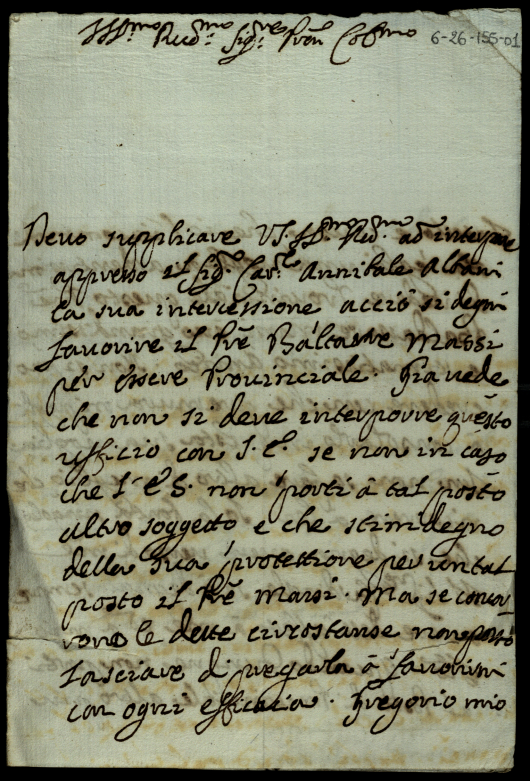 Ill.mo Rev.mo Sig.re Pron Col.mo
6-26-155-01
Devo supplicare VS. Ill.ma Rev.ma ad interporre
appresso il Sig. Car.le Annibale Albani
la sua intercessione acciò si degni
favorire il Pre Baltassre Massi
per essere Provinciale. Già vede
che non si deve interporre questo
ufficio con S. E. se non in caso
che l' E S. non porti à tal posto
altro soggetto e che stimi degno
della sua protettione per un tal
posto il Pre Massi. Ma se concor
rono le dette circostanse non posso
lasciare di pregarla à favorirmi
con ogni efficacia. Gregorio mio